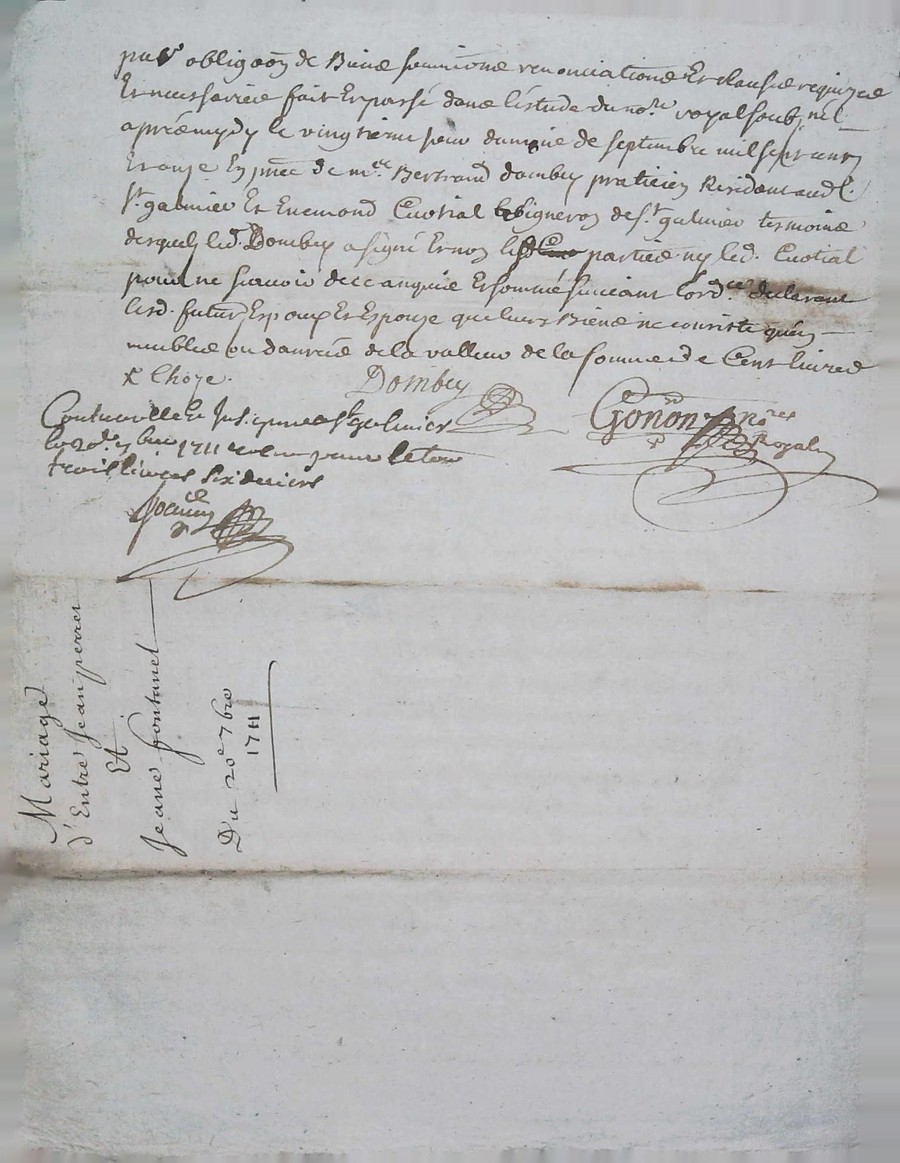 obligaon de Biens soumissions renonciations Et clauses requizes
Et necessaires fait Et passé dans l'estude du no.re royal soub.né
apres mydy le vingtieme jour du mois de septembre mil sept cens
Et onze En pnce de m.re Bertrand dombey praticien Residant aud.
St. galmier Et Enemond Cuotial vigneron de St. galmier tesmoins
desquels led. Dombey a signé Et non les parties ny led. Cuotial
pour ne scavoir de ce enquis Et sommé suivant lord.ce declarant
lesd. futurs Espoux Et Espouze que leurs Biens ne consiste qu'en
meubles ou danrées de la valleur de la somme de Cent livres
& Choze.
Dombey
Gonon no.re Royal
Controllé le St galmier
le 20e 7bre 1711
trois livres six deniers
Mariage
d'Entre Jean perret
Et
Jeane fontanel
Du 20e 7bre
1711